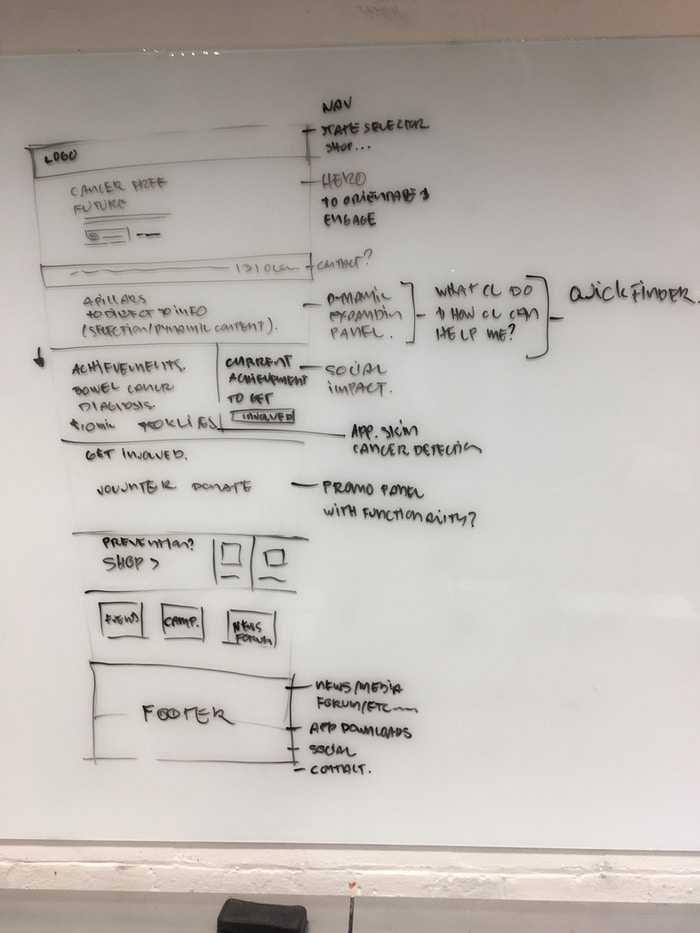 NAV
STATE SELECTOR
SHOP...
LOGO
HERO
TO ORIENTATE &
ENGAGE
CANCER FREE
FUTURE
CONTACT?
4 PILLARS
TO DIRECT TO INFO
(SELECTION/DYNAMIC CONTENT).
DYNAMIC
EXPANDIN
PANEL.
WHAT CL DO
& HOW CL CAN
HELP ME?
QUICKFINDER.
ACHIEVEMENTS.
BOWEL CANCER
DIAGNOSIS
CURRENT
ACHIEVEMENT
TO GET
INVOLVED
SOCIAL
IMPACT.
APP. SKIN
CANCER DETECTION
GET INVOLVED.
VOLUNTER DONATE
PROMO PANEL
WITH FUNCTIONALITY?
PREVENTION?
SHOP >
EVENTS
CAMP.
NEWS
FORUM
FOOTER
NEWS/MEDIA
FORUM/ETC
APP DOWNLOADS
SOCIAL
CONTACT.